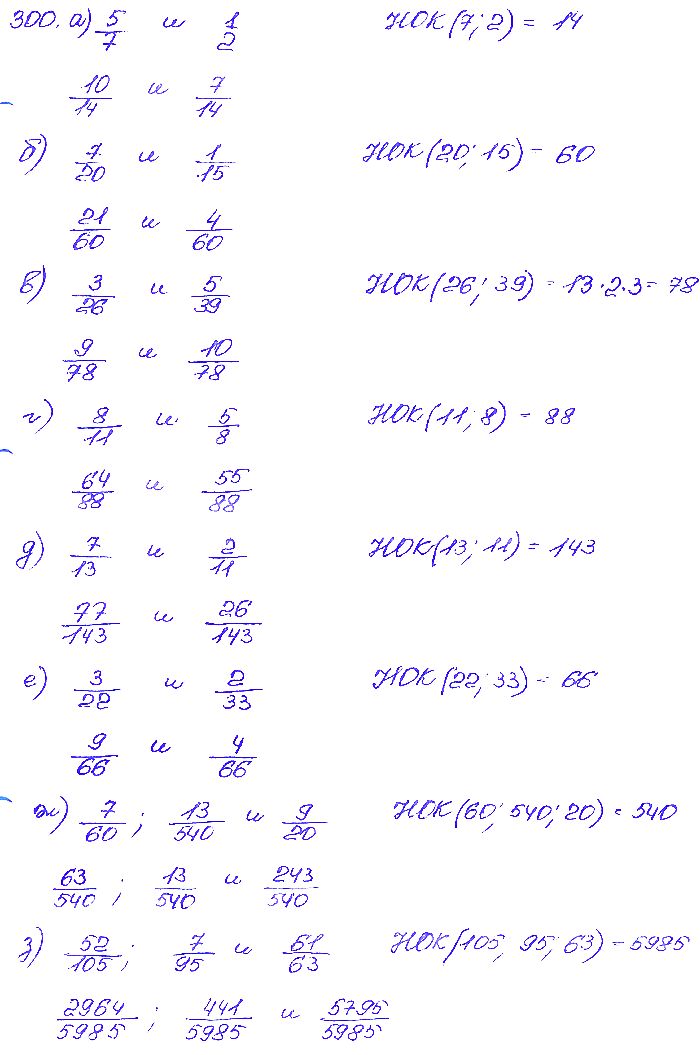 300. а) 5/7 и 1/2 НОК(7; 2) = 14
10/14 и 7/14
б) 7/20 и 1/15 НОК(20; 15) = 60
21/60 и 4/60
в) 3/26 и 5/39 НОК(26; 39) = 13·2·3 = 78
9/78 и 10/78
г) 8/11 и 5/8 НОК(11; 8) = 88
64/88 и 55/88
д) 7/13 и 2/11 НОК(13; 11) = 143
77/143 и 26/143
е) 3/22 и 2/33 НОК(22; 33) = 66
9/66 и 4/66
ж) 7/60; 13/540 и 9/20 НОК(60; 540; 20) = 540
63/540; 13/540 и 243/540
з) 52/105; 7/95 и 61/63 НОК(105; 95; 63) = 5985
2964/5985; 441/5985 и 5795/5985